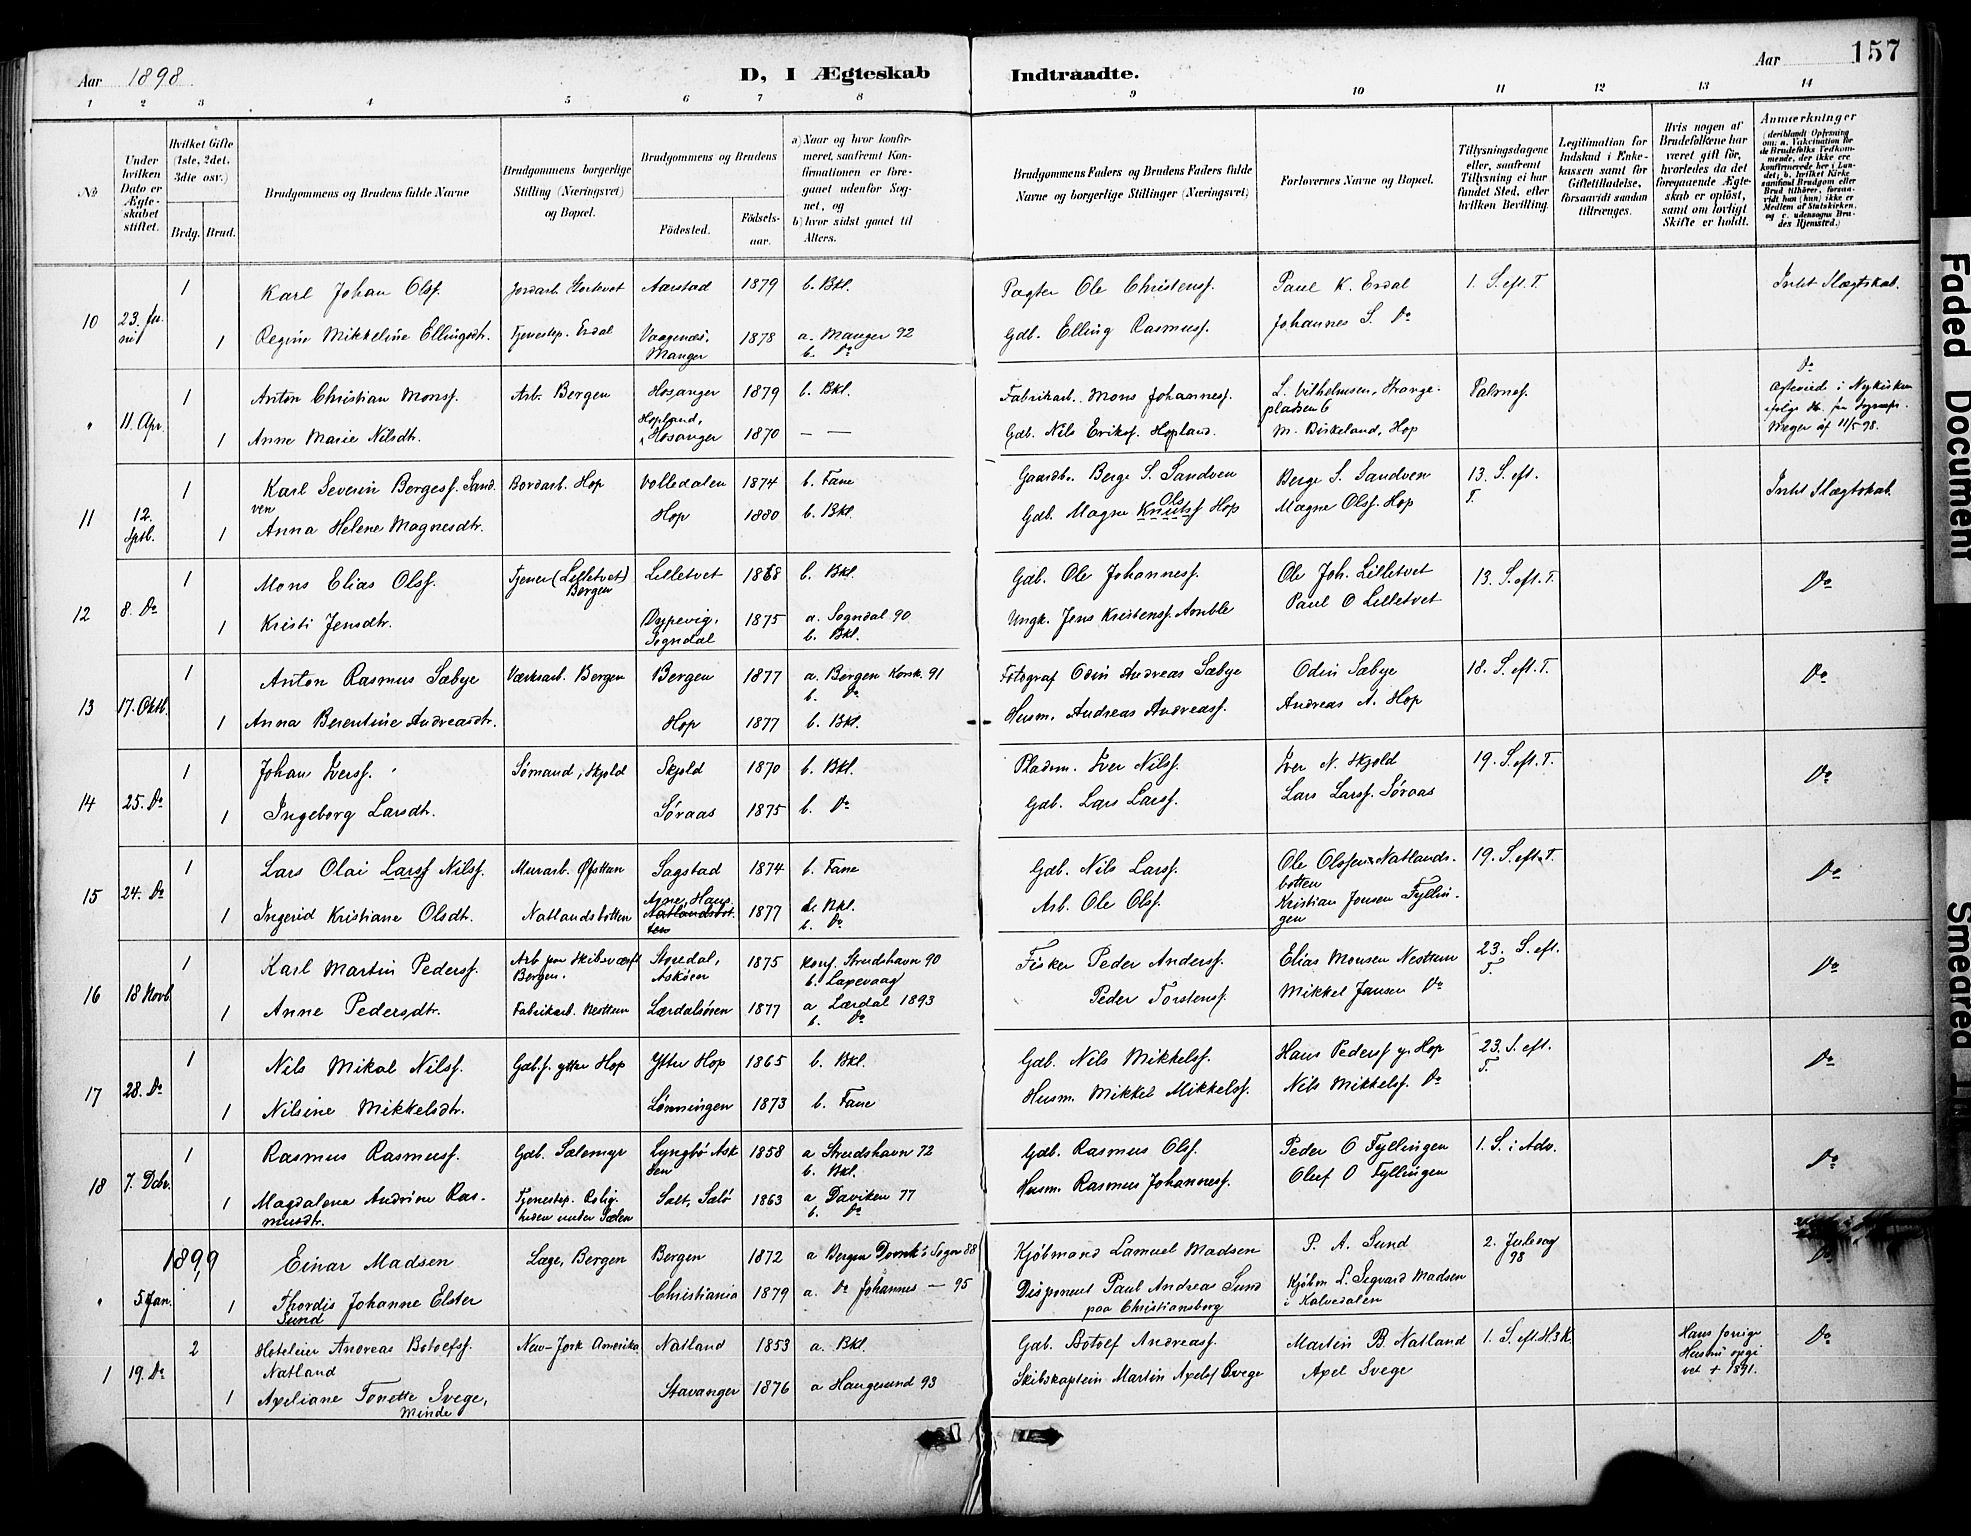 Aar 1898
D, I Ægteskab Indtraadte.
Aar 157
1 2 3 4 5 6 7 8 9 10 11 12 13 14
No
Under hvilken Dato er Ægteskabet stiftet.
Hvilket Gifte (1ste, 2det, 3die osv.)
Brdg. Brud.
Brudgommens og Brudens fulde Navne
Brudgommens borgerlige Stilling (Næringsvei) og Bopæl.
Brudgommens og Brudens
Födested.
Födselsaar.
a) Naar og hvor konfirmeret, saafremt Konfirmationen er foregaaet udenfor Sognet, og
b) hvor sidst gaaet til Alters.
Brudgommens Faders og Brudens Faders fulde Navne og borgerlige Stillinger (Næringsvei)
Forlovernes Navne og Bopæl.
Tillysningsdagene eller, saafremt Tillysning ei har fundet Sted, efter hvilken Bevilling.
Legitimation for Indskud i Enkekassen samt for Giftetilladelse, forsaavidt saadan tiltrænges.
Hvis nogen af Brudefolkene har været gift för, hvorledes da det foregaaende Ægteskab er oplöst, samt om lovligt Skifte er holdt.
Anmærkninger (deriblandt Oplysning om: a. Vakcination for de Brudefolks Vedkommende, der ikke ere konfirmerede her i Landet; b. hvilket Kirkesamfund Brudgom eller Brud tilhörer, forsaavidt han (hun) ikke er Medlem af Statskirken, og c. udensogns Brudes Hjemsted.)
10 23. Juni 1 Karl Johan Olsf. Jordarb. Aarstad 1879 b. Bkl. Pagter Ole Christensf. Paul K. Erdal 1. S. eft. T. Intet Slægtskab.
1 Regine Mikkeline Ellingsdtr. Tjenestep. Erdal Vaagenæs, Manger 1878 a. Manger 92 b. Do Gdb. Elling Rasmusf. Johannes S. Do
" 11. Apr. 1 Anton Christian Monsf. Arb. Bergen Hosanger 1879 b. Bkl. Fabrikarb. Mons Johannesf. L. Vilhelmsen, Strangepladsen 6 Palmes. Do Ægteviet i Nykirken ifølge 11/5 98.
1 Anne Marie Nilsdtr. Hopland, Hosanger 1870 — — Gdb. Nils Eriksf. Hopland. M. Birkeland, Hop
11 12. Sptb. 1 Karl Severin Bergesf. Sandven Bordarb. Hop Volledalen 1874 b. Fane Gaardbr. Berge S. Sandven Berge S. Sandven 13. S. eft. T. Intet Slægtskab.
1 Anna Helene Magnesdtr. Hop 1880 b. Bkl. Gdb. Magne Knutsf Ols Hop Magne Olsf. Hop
12 8. Do 1 Mons Elias Olsf. Tjener (Lilletvet) Bergen Lilletvet 1868 b. Bkl. Gdb. Ole Johannesf. Ole Joh. Lilletvet 13. S. eft. T. Do
1 Kristi Jensdtr. Dypevig, Sogndal 1875 a. Sogndal 90 b. Bkl. Ungk. Jens Kristensf. Amble Paul O Lilletvet
13 17. Oktb. 1 Anton Rasmus Sæbye Værksarb. Bergen Bergen 1877 a. Bergen Korsk. 91 b. Do Fotograf Odin Andreas Sæbye Odin Sæbye 18. S. eft. T. Do
1 Anna Berentine Andreasdtr. Hop 1877 b. Bkl. Husm. Andreas Andreasf. Andreas A. Hop
14 25. Do 1 Johan Iversf. Sømand, Skjold Skjold 1870 b. Bkl. Pladsm. Iver Nilsf. Iver N. Skjold 19. S. eft. T. Do
1 Ingeborg Larsdtr. Søraas 1875 b. Do Gdb. Lars Larsf. Lars Larsf. Søraas
15 24. Do 1 Lars Olai Larsf Nilsf. Murarb. Øfsttun Sagstad 1874 b. Fane Gdb. Nils Larsf. Ole Olsen Natlandsbotten 19. S. eft. T. Do
1 Ingerid Kristiane Olsdt. Natlandsbotten Agne, Haus. Natlandsbotten 1877 a. Bkl. b. Do Arb. Ole Olsf. Kristian Jensen Fyllingen
16 18 Novb 1 Karl Martin Pedersf. Arb paa Skibsværft Bergen. Askøen 1875 konf. Strudshavn 90 b. Laxevaag Fisker Peder Andersf. Elias Monsen Nesttun 23. S. eft. T. Do
1 Anne Pedersdtr. Fabrikarb. Nesttun Lærdalsören 1877 a Lærdal 1893 b. Do Peder Torstensf. Mikkel Jansen Do
17 28. Do 1 Nils Mikal Nilsf. Gdb.f. ytter Hop Ytter Hop 1865 b. Bkl. Gdb. Nils Mikkelsf. Hans Pedersf y. Hop 23. S. eft. T. Do
1 Nilsine Mikkelsdtr. Lønningen 1873 b. Fane Husm. Mikkel Mikkelsf. Nils Mikkelsf. Do
18 7. Dcbr. 1 Rasmus Rasmusf. Gdb. Sælemyr Lyngbö Asköen 1858 a Strudshavn 72 b. Bkl. Gdb. Rasmus Olsf. Peder O Fyllingen 1. S. i Adv. Do
1 Magdalena Andrine Rasmusdtr. Tjenestep. Roligheden under Sælen Salt, Selö 1863 a Daviken 77 b. Do Husm. Rasmus Johannesf. Oluf O Fyllingen
1899
" 5 Jan. 1 Einar Madsen Læge, Bergen Bergen 1872 a Bergen Domk: Sogn 88 Kjøbmand Lamuel Madsen P. A. Sund 2. Juledag 98 Do
1 Thordis Johanne Elster Sund Christiania 1879 a. Do Johannes — 95 Disponent Paul Andreas Sund paa Christiansborg Kjøbm L. Segvard Madsen i Kalvedalen
1 19. Do 2 Hoteleier Andreas Botolfsf. Natland New-York Amerika. Natland 1853 a. Bkl. Gdb. Botolf Andreasf. Martin B. Natland 1. S. eft. H3K. Hans forrige Hustru opgivet + 1891. Do
1 Axeliane Tonette Svege, Minde Stavanger 1876 a Haugesund 93 Skibskaptein Martin Axelsf Svege Axel Svege
Faded Document
Smeared Ink